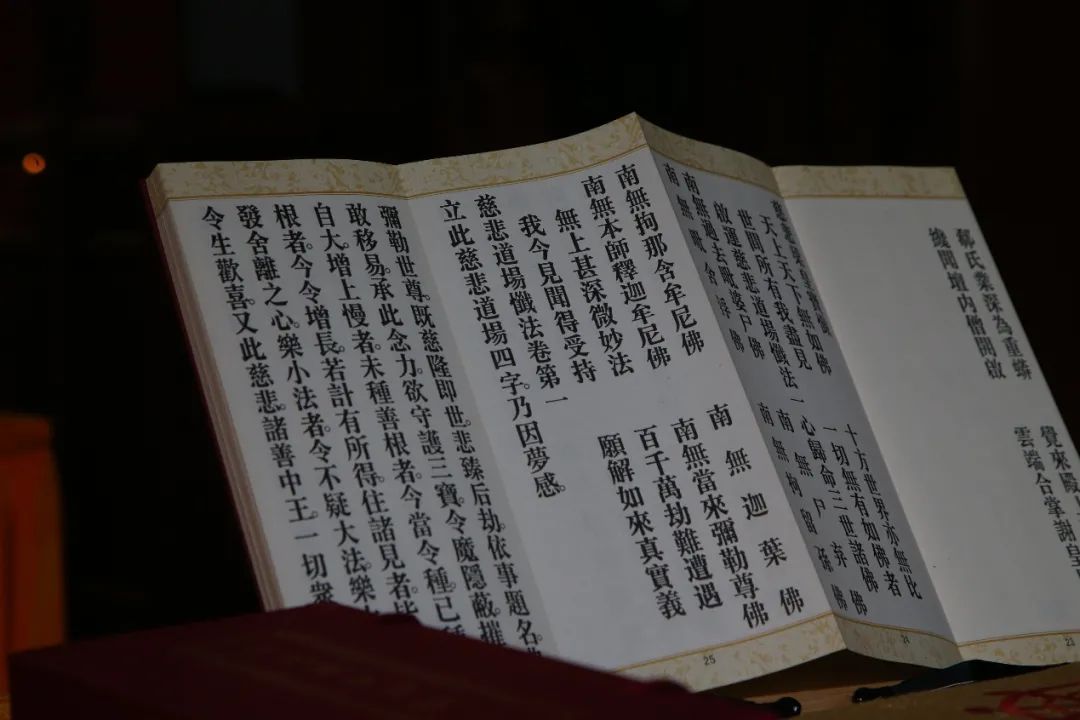 郗氏業深為重蟒 覺來殿
纔聞壇內僧開啟 雲端合掌謝皇
慈悲梁皇寶懺
天上天下無如佛 十方世界亦無比
世間所有我盡見 一切無有如佛者
啟運慈悲道場懺法 一心歸命三世諸佛
南無過去毗婆尸佛 南無尸棄佛
南無毗舍浮佛 南無拘留孫佛
南無拘那含牟尼佛 南無迦葉佛
南無本師釋迦牟尼佛 南無當來彌勒尊佛
無上甚深微妙法 百千萬劫難遭遇
我今見聞得受持 願解如來真實義
慈悲道場懺法卷第一
立此慈悲道場四字。乃因夢感。
彌勒世尊。既慈隆即世。悲臻后劫。依事題名。
敢移易。承此念力。欲守護三寶。令魔隱蔽。摧
自大增上慢者。未種善根者。今當令種。已種
根者。今令增長。若計有所得。住諸見者。皆
發舍離之心。樂小法者。令不疑大法。樂
令生歡喜。又此慈悲。諸善中王。一切眾
23
24
25